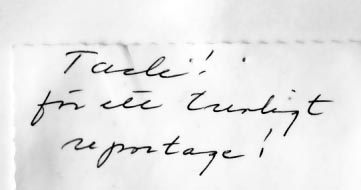 Tack!
för ett trevligt
reportage!